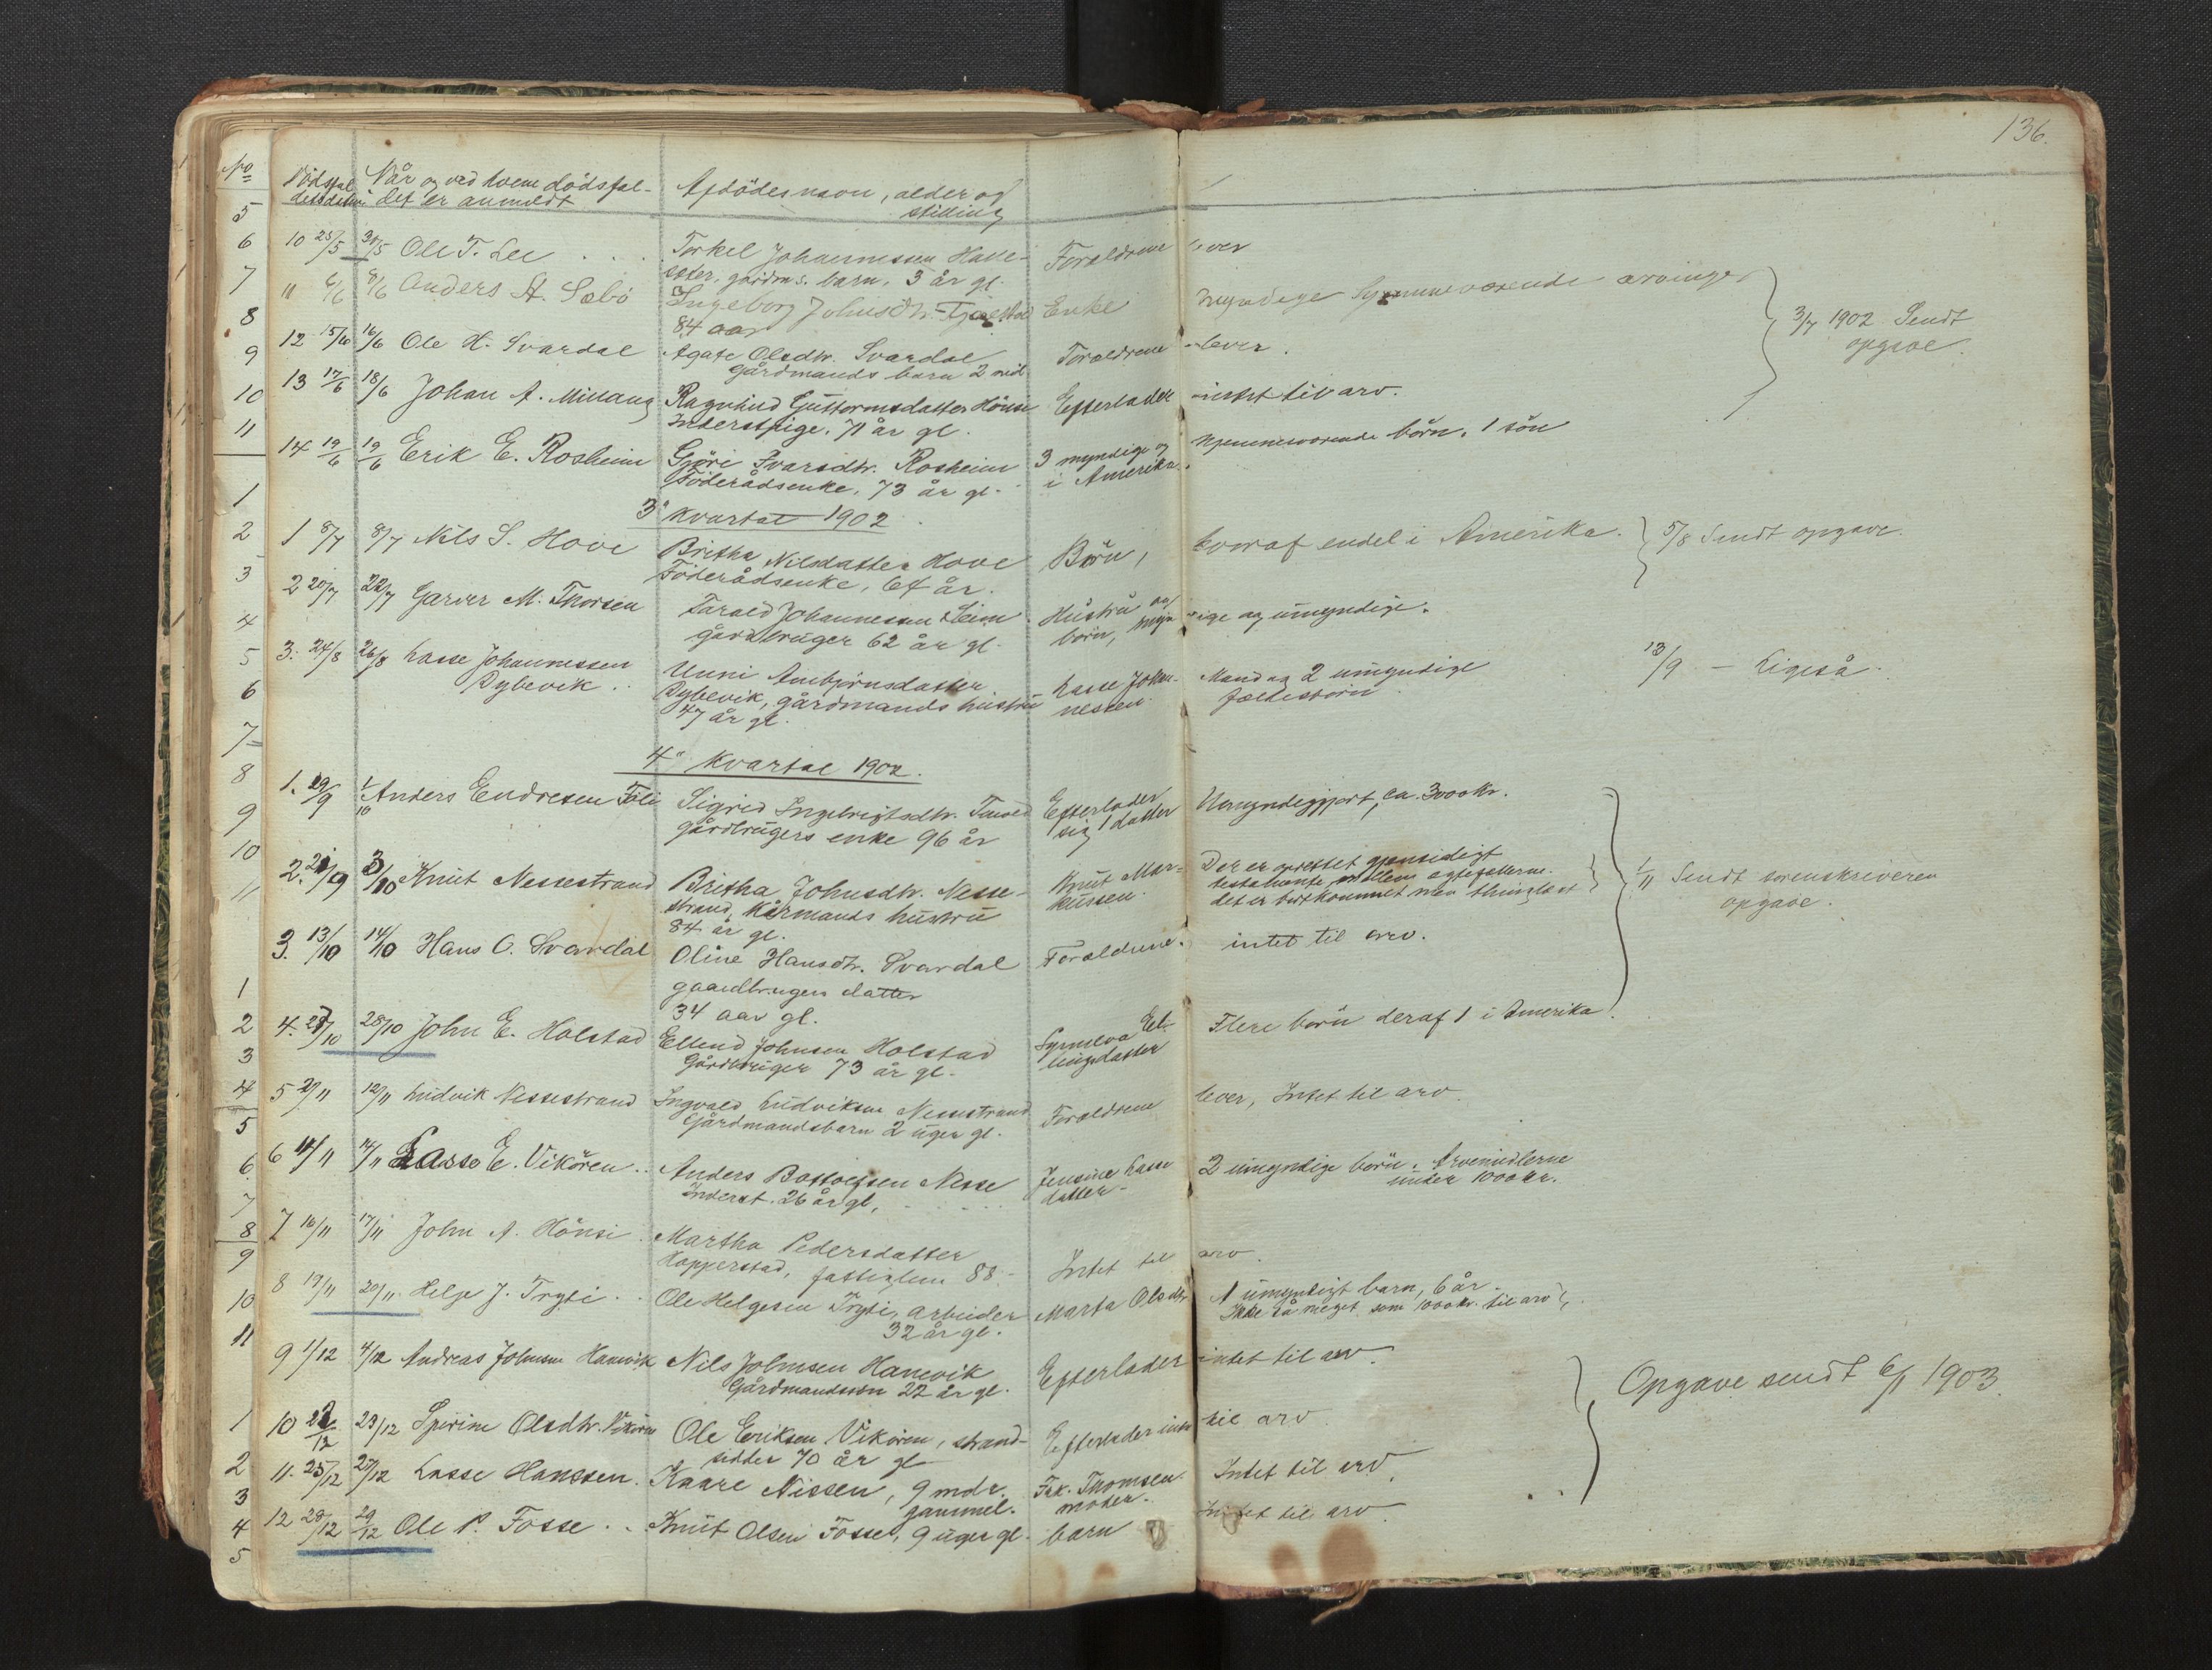 136.
No
Dödsfal- Når og ved hvem dödsfal- Afdödes navn, alder og
dets datum det er anmeldt stilling
10 25/5 30/5 Ole T. Lee . . . . Torkel Johannessen Hove- Foraldrene lever
gårdm.s. barn, 3 år gl.
11 6/6 8/6 Anders A. Sæbö Ingeborg Johnsdtr. Enke myndige hjemmeværende arvinger
84 aar
3/7 1902 Sendt
opgave.
12 15/6 16/6 Ole H. Svardal Agate Olsdtr. Svardal Foraldrene lever.
gårdmands barn 2 md.
13 17/6 18/6 Johan A. Millang Ragnhild Guttormsdatter Hönse Efterlader intet til arv.
Inderstpige. 71 år gl.
14 19/6 19/6 Erik E. Rosheim Gjöri Ivarsdtr. Rosheim 3 myndige og hjemmeværende börn. 1 sön
Föderådsenke, 73 år gl. i Amerika.
3" kvartal 1902
1 8/7 8/7 Nils S. Hove Britha Nilsdatter Hove Börn, hvoraf endel i Amerika. 5/8 Sendt opgave.
Föderådsenke, 64 år.
2 20/7 22/7 Garver M. Thorsen Tarald Johannessen Seim Hustru og
gårdbruger 62 år gl. börn, myndige og umyndige.
3. 24/8 26/8 Lasse Johannessen Unni Ambjörnsdatter Lasse Johan- Mand og 2 umyndige 13/9 — Ligeså.
Dybevik . . Dybevik, gårdmands hustru nessen. fællesbörn.
47 år gl.
4" kvartal 1902.
1. 29/9 1/10 Anders Endresen Föli Sigrid Ingebrigtsdtr. Efterlader Umyndiggjort, ca. 3000 kr.
gårdbrugers enke 96 år sig 1 datter
2. 29/9 3/10 Knut Nessestrand Britha Johnsdtr. Nesse- Knut Mar- Der er oprettet gjensidigt
strand, Kårmands hustru kussen. testamente mellem egtefællerne.
84 år gl. det er bortkommet men thinglæst
1/11 Sendt sorenskriveren
opgave.
3. 13/10 14/10 Hans O. Svardal Oline Hansdtr. Svardal Foraldrene. intet til arv.
gaardbrugers datter
34 aar gl.
4. 27/10 28/10 John E. Holstad Ellend Johnsen Holstad Synneva El- Flere börn deraf 1 i Amerika.
Gårdbruger 73 år gl. lingsdatter
5 2/11 12/11 Ludvik Nessestrand Ingvald Ludviksen Nessestrand Foraldrene lever, Intet til arv.
Gårdmandsbarn 2 uger gl.
6 11/11 14/11 Lasse E. Vikören . . Anders Bottolfsen Nesse Jensine Lasse 2 umyndige börn. Arvemidlerne
Inderst. 26 år gl, . . . . datter- under 1000 kr.
7 16/11 17/11 John A. Hönsi . Martha Pedersdatter
Hopperstad, fattiglem 88. Intet til arv.
8 19/11 20/11 Helge J. Trygi . . Ole Helgesen Trygi, arbeider Marta Olsdtr 1 umyndigt barn, 6 år.
32 år gl. Ikke så meget som 1000 kr. til arv
9 1/12 4/12 Andreas Johnsen Hamvik Nils Johnsen Hamvik Efterlader intet til arv.
Gårdmandssön 22 år gl.
Opgave sendt 6/1 1903.
10 22/12 23/12 Sperine Olsdtr. Vikören Ole Eriksen Vikören, strand- Efterlader intet til arv
sidder 70 år gl
11. 25/12 27/12 Lasse Hanssen. Kaare Nissen, 9 mdr. Frk. Thomsen Intet til arv.
gammel. moder.
12 28/12 29/12 Ole P. Fosse . . Knut Olsen Fosse, 9 uger gl. barn Intet til arv.